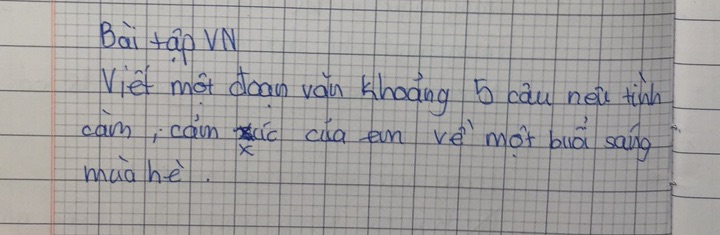 Bài tập VN
Viết một đoạn văn khoảng 5 câu nêu tình
cảm, cảm xúc của em về một buổi sáng
mùa hè.